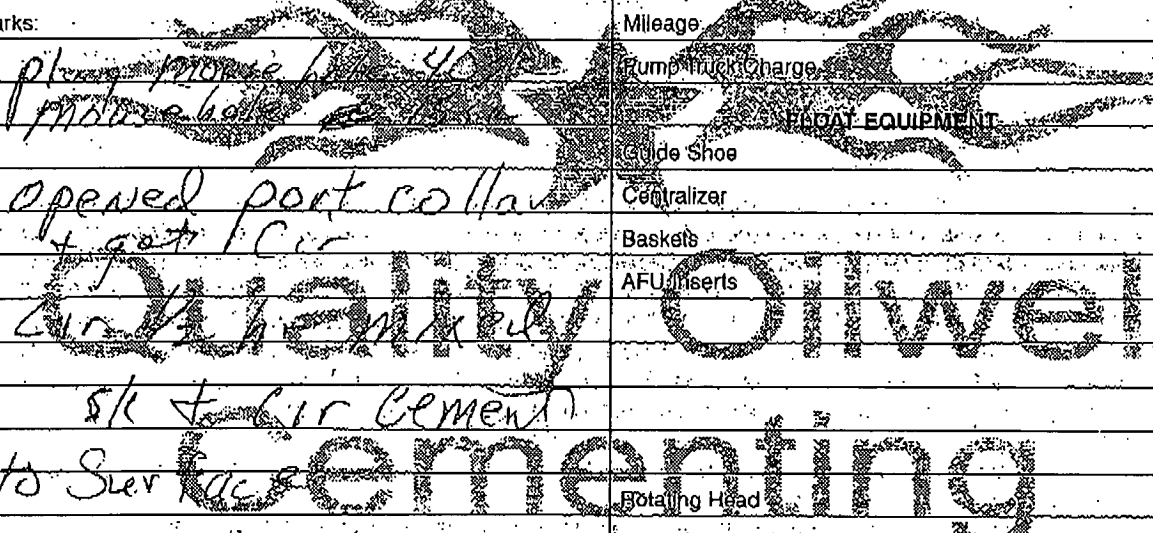 arks:
plug mouse hole
mouse hole
opened port collar
+ got Cir
Cir 1/2 hr mixed
s/k + Cir Cement
to Surface
Mileage
Pump Truck Charge
FLOAT EQUIPMENT
Guide Shoe
Centralizer
Baskets
AFU Inserts
Rotating Head
Quality Oilwel
Cementing